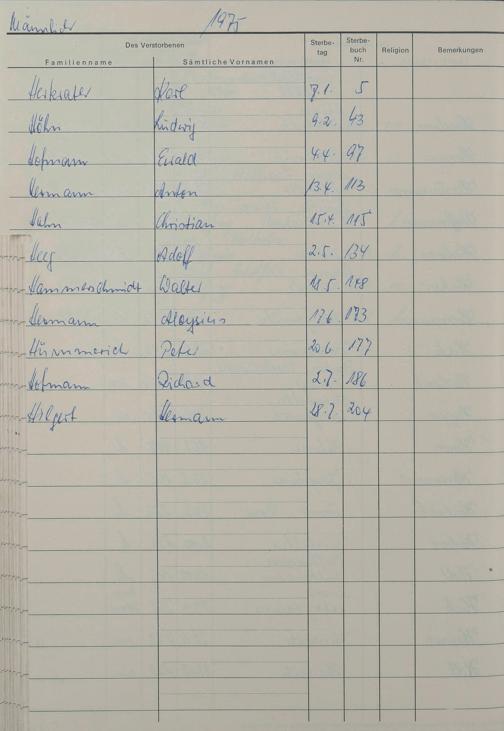 Männlich 1975
Des Verstorbenen
Familienname Sämtliche Vornamen Sterbe-tag Sterbe-buch Nr. Religion Bemerkungen
Herkrater Karl 7.1. 5
Höhn Ludwig 9.2. 43
Hofmann Ewald 4.4. 97
Hermann Anton 13.4. 113
Hahn Christian 15.4. 115
Heeg Adolf 2.5. 134
Hammerschmidt Walter 18.5. 148
Hermann Aloysius 17.6. 173
Hümmerich Peter 20.6. 177
Hofmann Richard 2.7. 186
Hilgert Hermann 28.7. 204